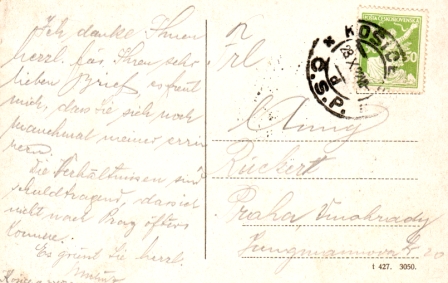 Ich danke Ihnen
herzl. für Ihren sehr
lieben Brief, es freut
mich, dass Sie sich noch
manchmal meiner errin
nern.
Die Verhältnisse sind
schuldtragend, dass ich
nicht nach Prag öfters
komme.
Es grüsst Sie herzl.
Frl.
Anny
Rückert
Praha, Vinohrady
Jungmannova 20
KOŠICE
C.S.P.
50
1 427. 3050.